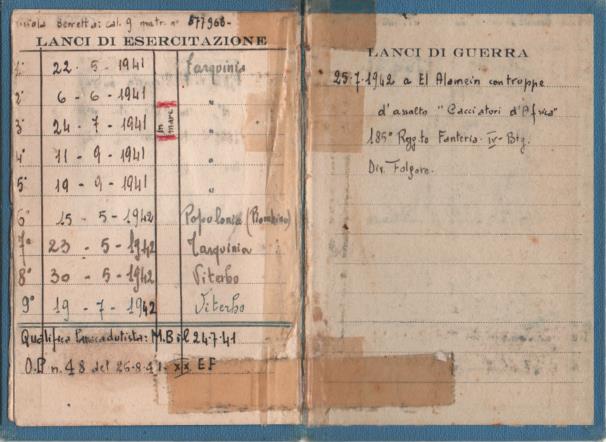 Beretta: cal. 9 matr. n° 877968-
LANCI DI ESERCITAZIONE
1° 22 - 5 - 1941 Tarquinia
2° 6 - 6 - 1941 "
3° 24 - 7 - 1941 in mare "
4° 11 - 9 - 1941 "
5° 19 - 9 - 1941 "
6° 15 - 5 - 1942 Populonia (Piombino)
7° 23 - 5 - 1942 Tarquinia
8° 30 - 5 - 1942 Viterbo
9° 19 - 7 - 1942 Viterbo
Qualifica Paracadutista: M.B il 24.7.41
O.P n. 48 del XX EF
LANCI DI GUERRA
25.7.1942 a El Alamein con truppe
d'assalto "Cacciatori d'Africa"
185° Regg.to Fanteria - IV - Btg.
Div. Folgore.